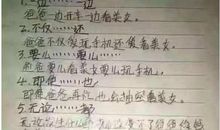 1. 一边……一边
爸爸一边开车一边看美女。
2. 不仅……还
爸爸不仅爱玩手机还爱看美女。
3. 要么……要么……
爸爸要么看美女要么玩手机。
4. 即使……也
即使爸爸再忙也会抽空看美女。
5. 无论……
无论